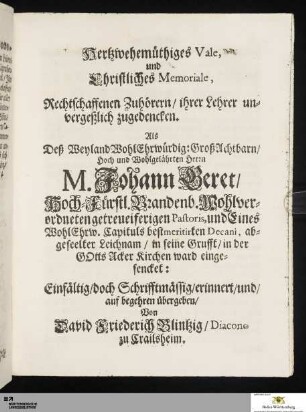 Hertzwehemüthiges Vale,
und
Christliches Memoriale,
Rechtschaffenen Zuhörern/ ihrer Lehrer un-
vergeßlich zugedencken.
Als
Deß Weyland WohlEhrwürdig: GroßAchtbarn/
Hoch und Wohlgelährten Herrn
M. Johann Beret/
Hoch-Fürstl. Brandenb. Wohlver-
ordneten getreueiferigen Pastoris, und Eines
WohlEhrw. Capituls bestmeritirten Decani, ab-
geseelter Leichnam/ in seine Grufft/ in der
GOttes Acker Kirchen ward einge-
sencket:
Einfältig/ doch Schrifftmässig/ erinnert/ und/
auf begehren übergeben/
Von
David Friederich Blintzig/ Diacono
zu Crailsheim.
Baden-Württemberg